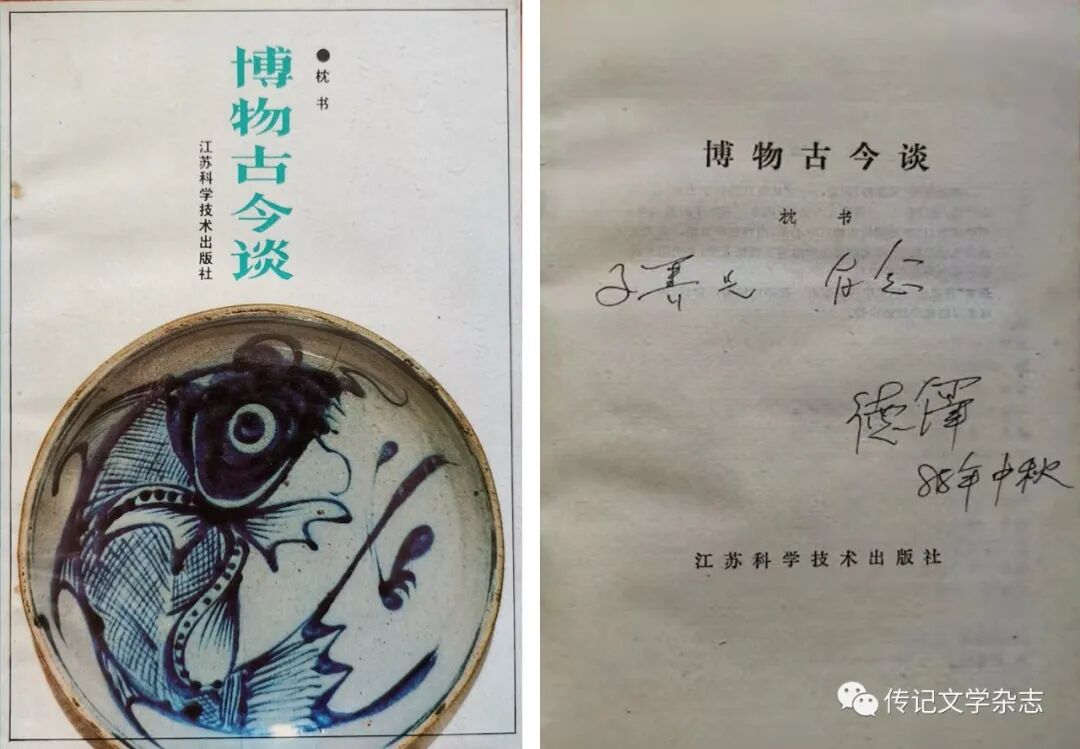 枕书
博物古今谈
江苏科学技术出版社
博物古今谈
枕 书
子善兄 存念
德鐸
年中秋
江苏科学技术出版社
传记文学杂志